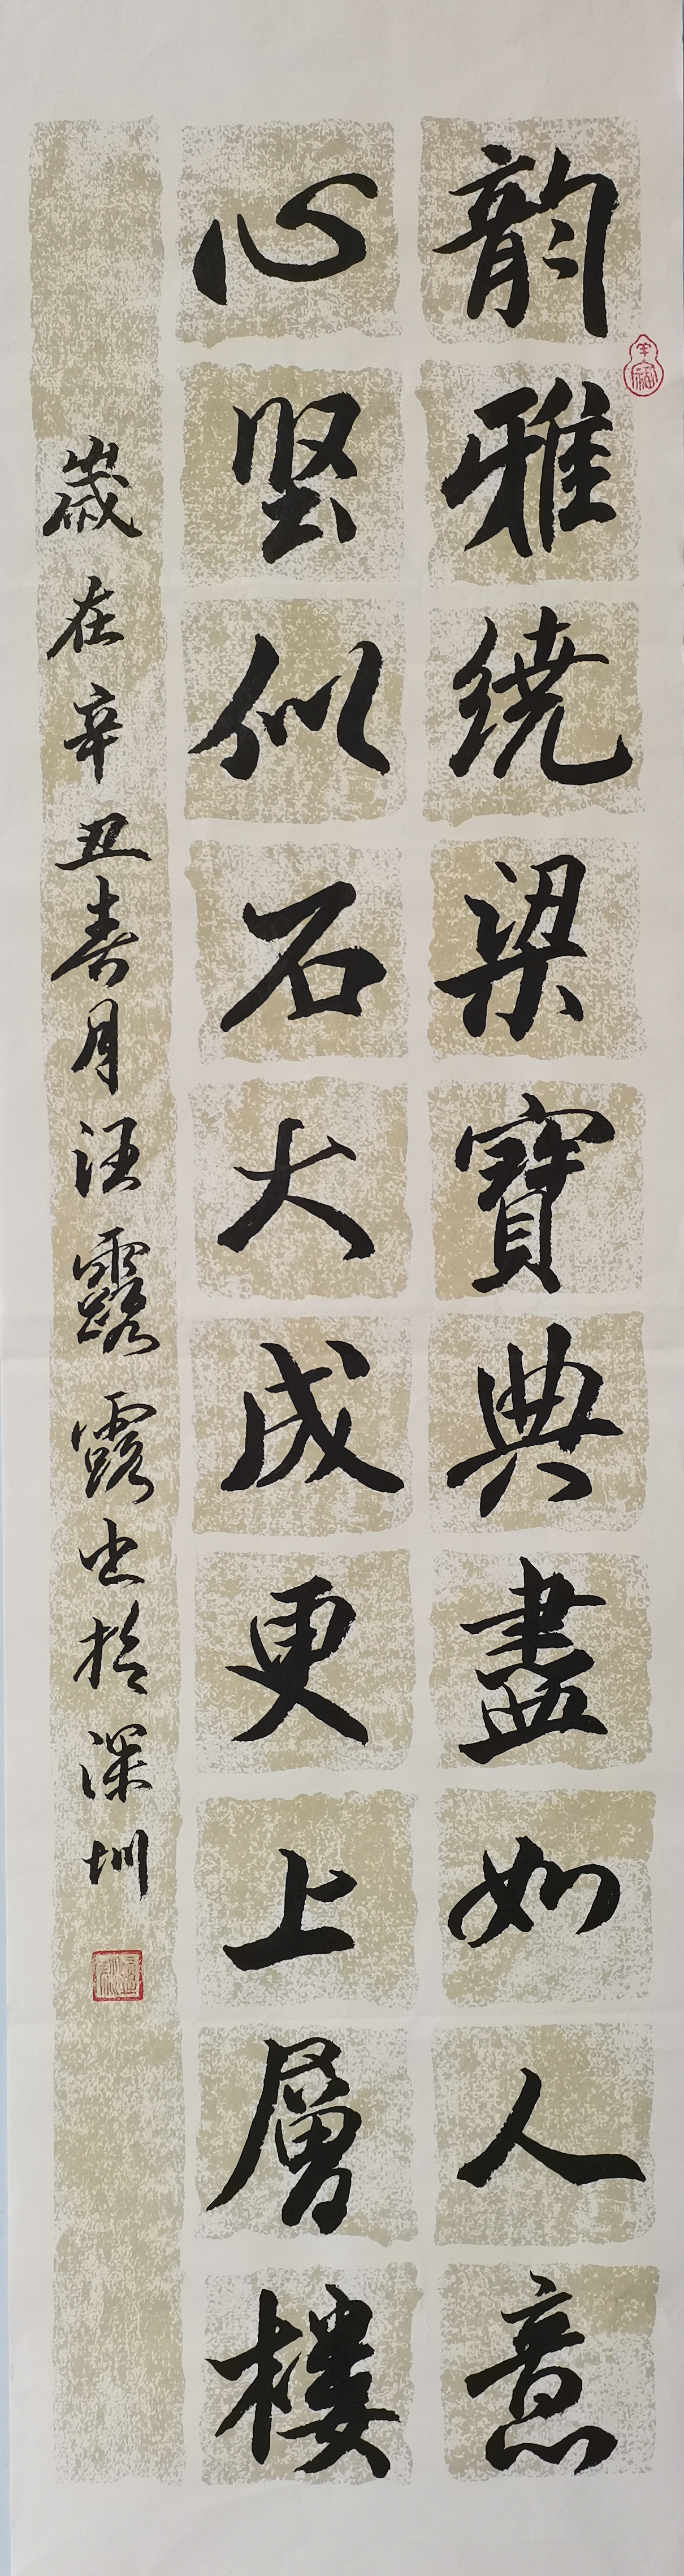 韵雅绕梁寶典盡如人意
心坚似石大成更上層樓
歲在辛丑春月汪露露书於深圳